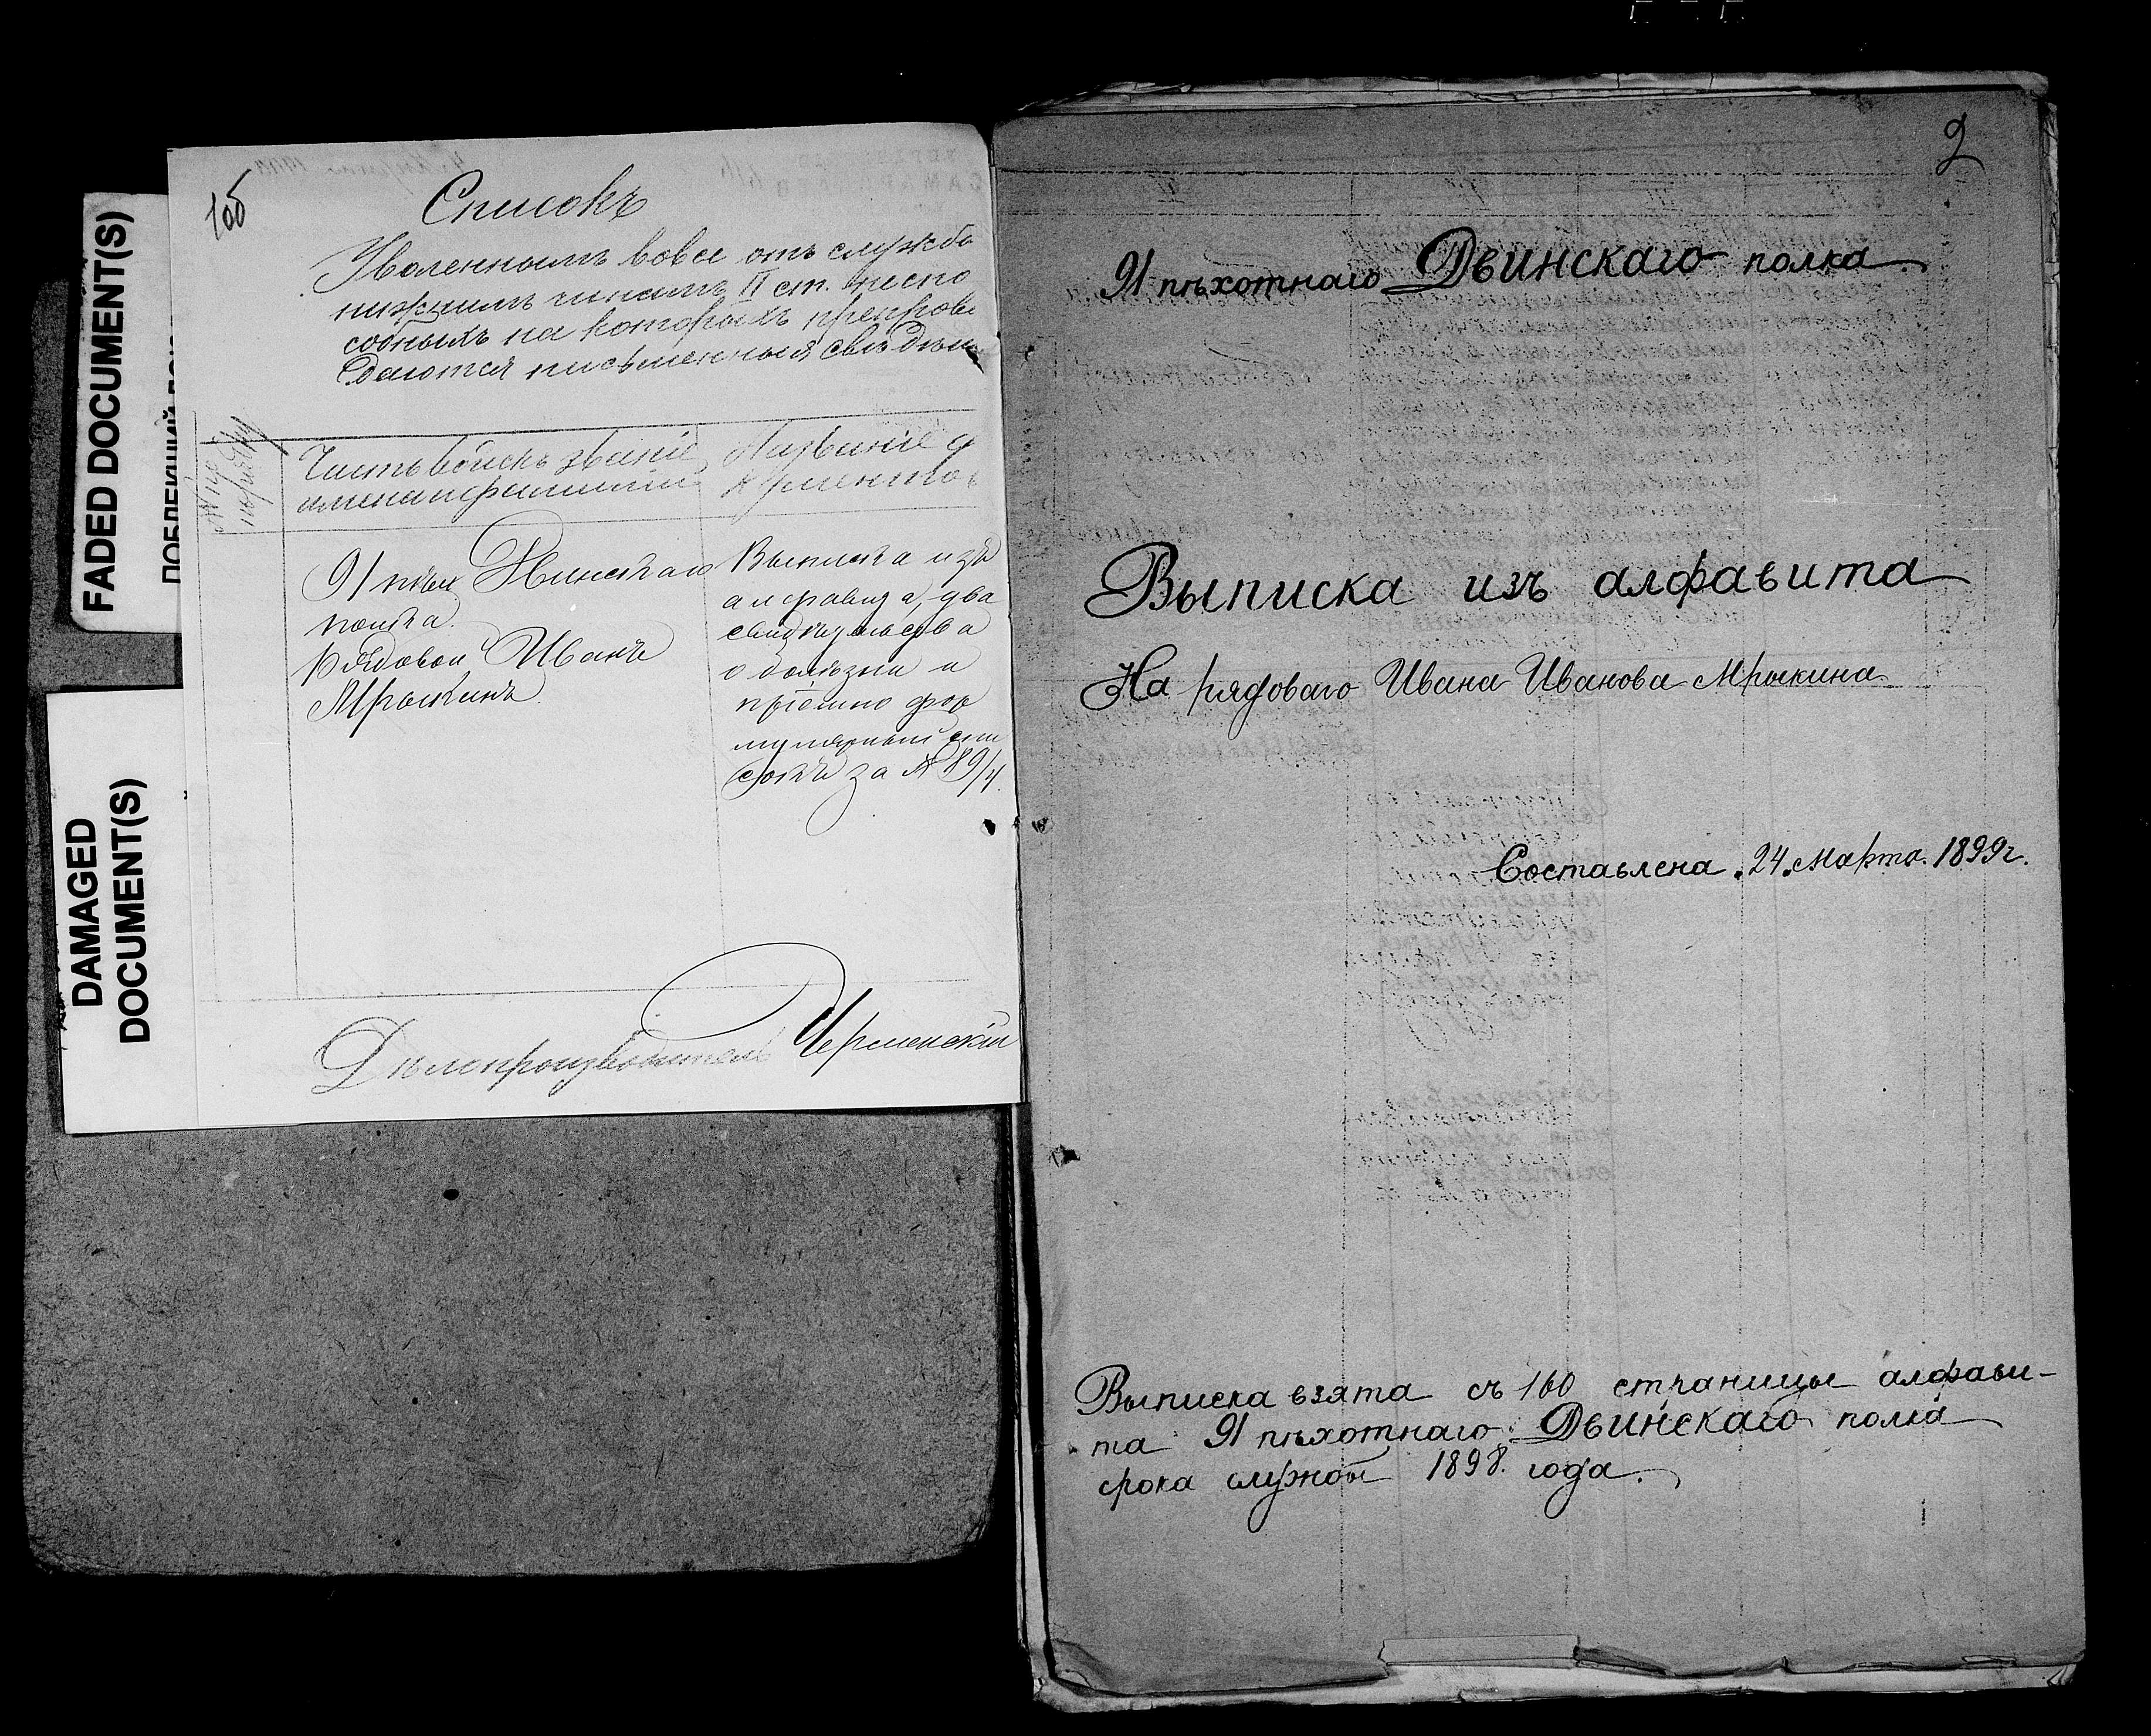 FADED DOCUMENT(S)
DAMAGED
DOCUMENT(S)
1об
Списокъ
Уволеннымъ вовсе отъ службы
нижнимъ чинамъ II ст. неспо
собныхъ на которыхъ препрово
даются письменныя свѣдѣн
№ по
порядку
Часть войскъ званіе
имена и фамиліи
Названіе д
кументов
91 пѣх Двинскаго
полка.
Рядовой Иванъ
Мрыкинъ
Выписка изъ
алфавита, два
свидѣтельства
о болѣзни и
пріемно фор
мулярный спи
сокъ за №
Дѣлопроизводитель Черменскій
2
91 пѣхотнаго Двинскаго полка.
Выписка изъ алфавита
На рядоваго Ивана Иванова Мрыкина
Составлена "24" Марта 1899 г.
Выписка взята съ 160 страницы алфави-
та 91 пѣхотнаго Двинскаго полка
срока службы 1898 года.